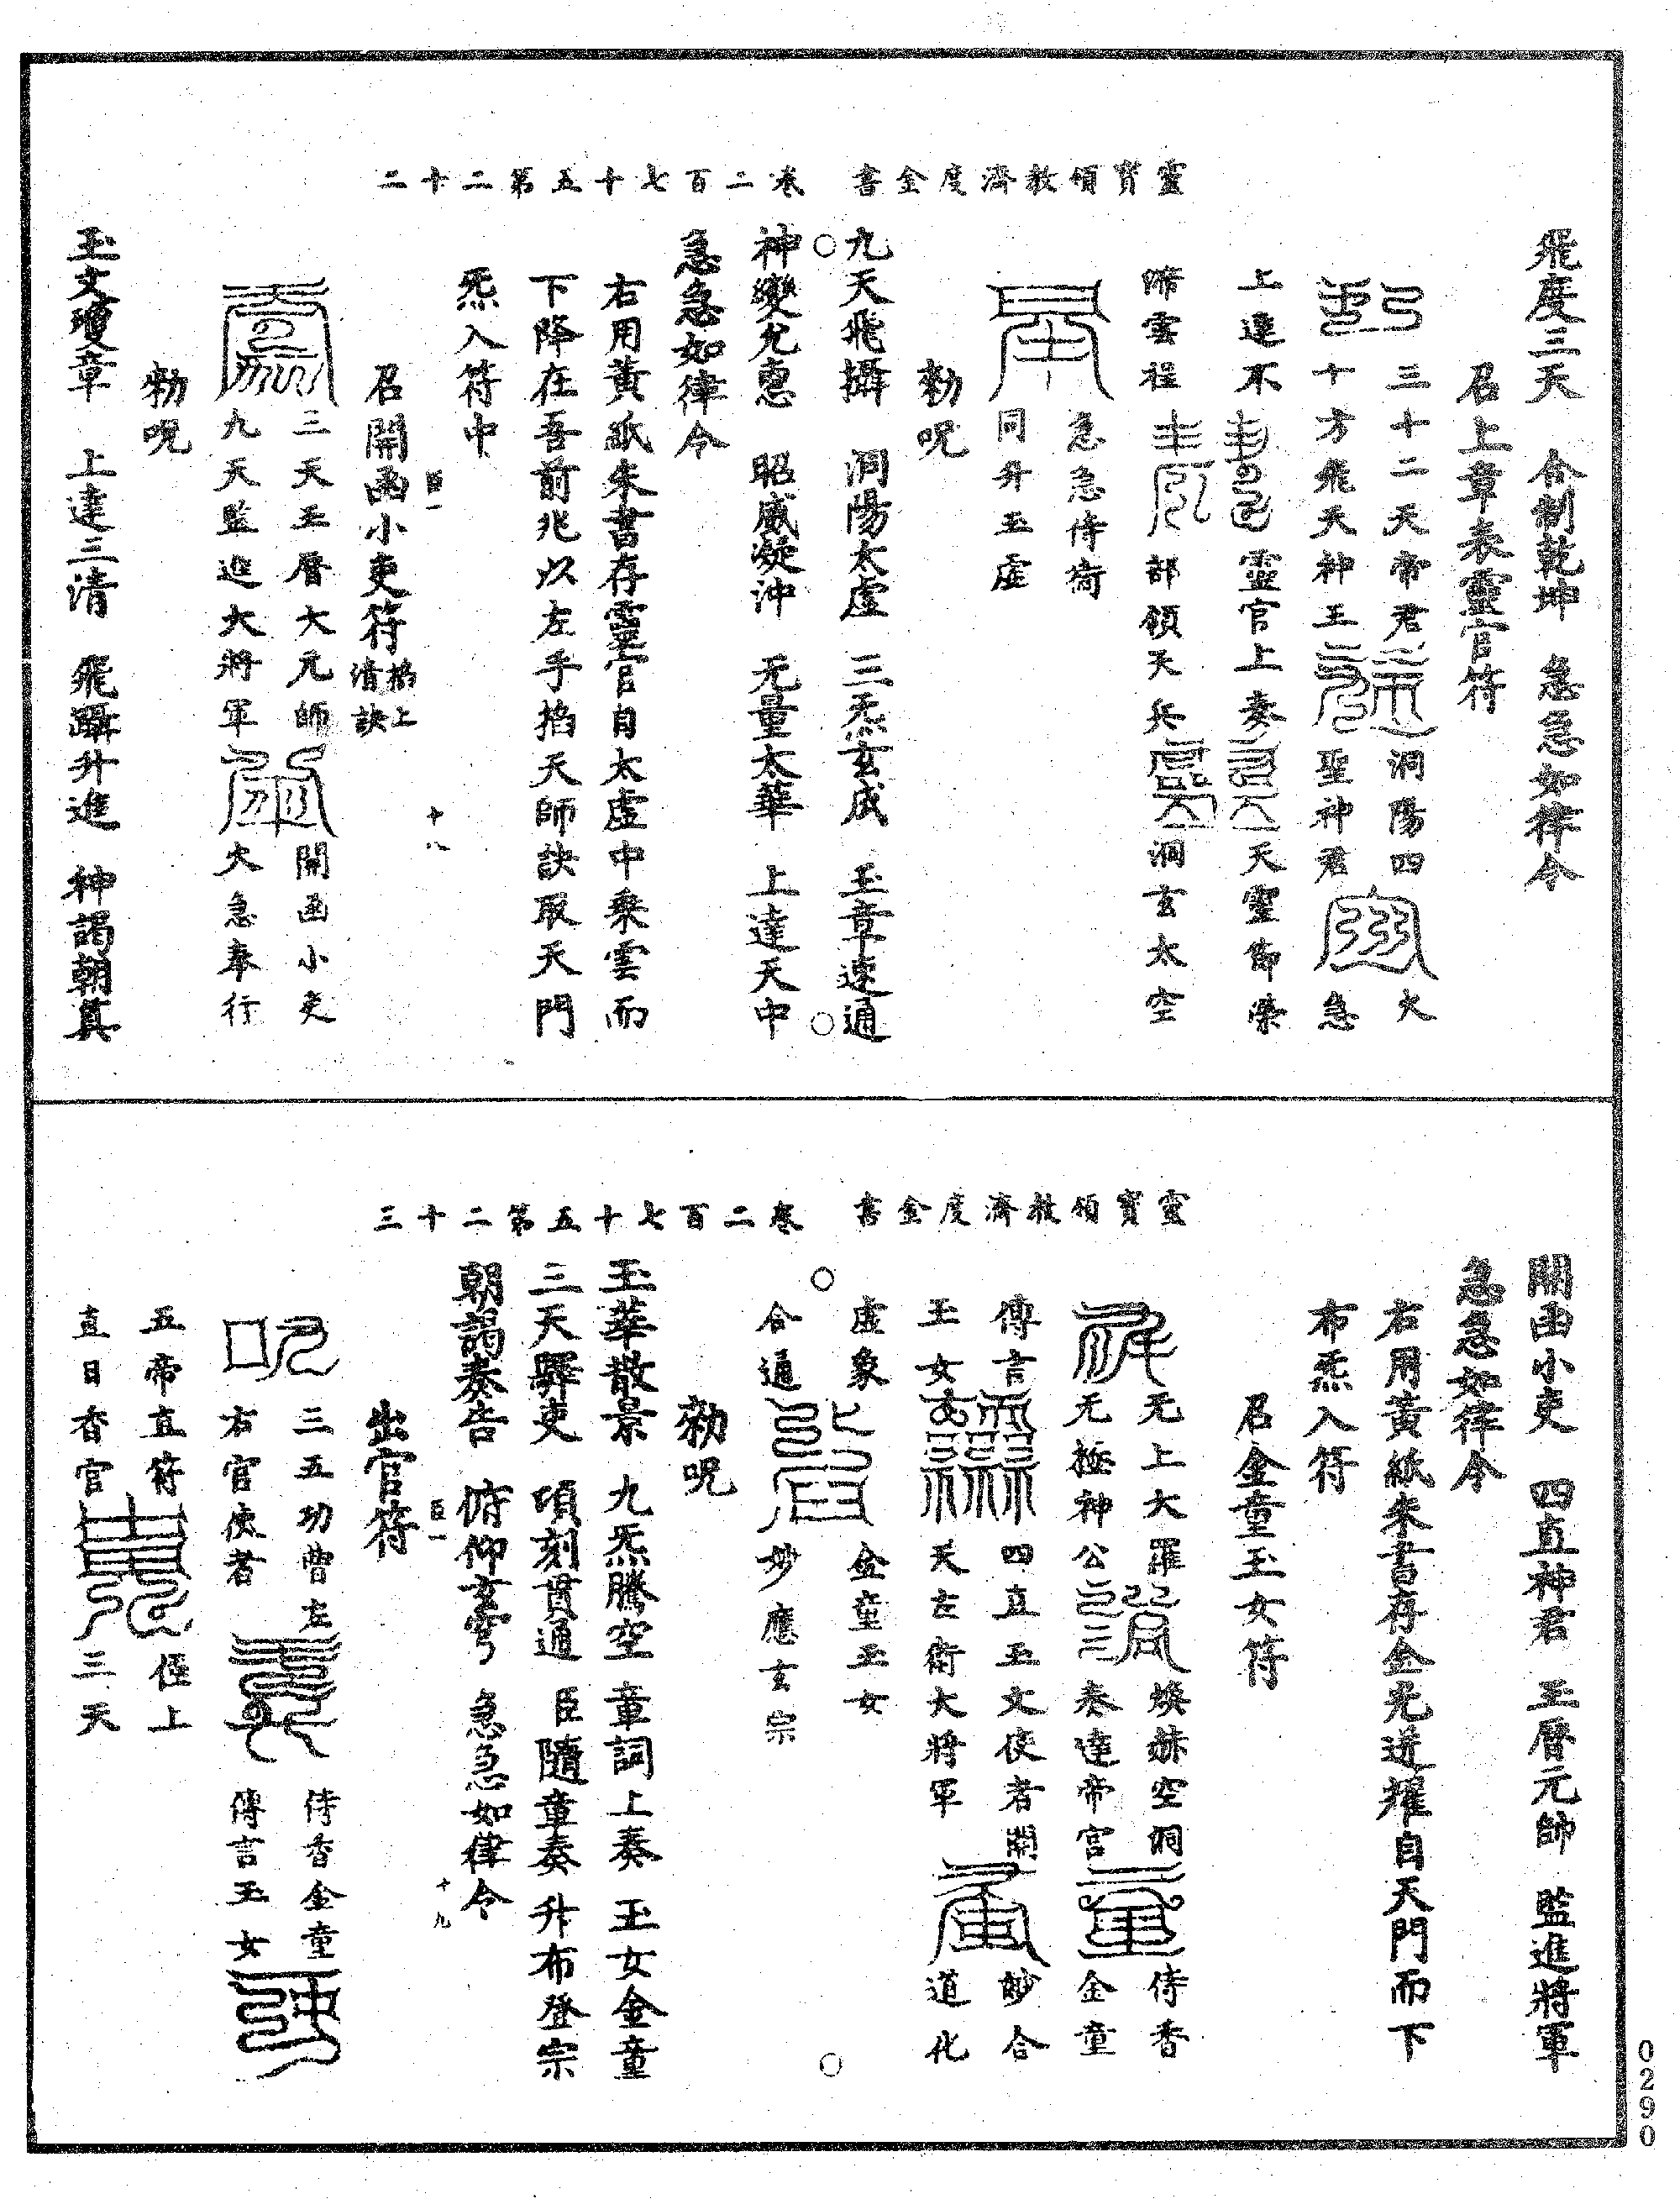 靈寶領教濟度金書　卷二百七十五第二十二
飛度三天　合制乾坤　急急如律令
召上章表靈官符
三十二天帝君　洞陽四　大
十方飛天神王　聖神君　急
上達不　靈官上奏　天靈飾榮
啼雲程　部領天兵　洞玄太空
急急侍衛
同升玉虛
勑呪
九天飛攝　洞陽太虛　三炁玄成　玉章速通
神變允惠　昭威凝沖　无量太華　上達天中
急急如律令
右用黃紙朱書存靈官自太虛中乘雲而
下降在吾前兆以左手掐天師訣取天門
炁入符中
臣一　十八
召開函小吏符掐上清訣
三天玉曆大元師　開函小吏
九天監進大將軍　火急奉行
勑呪
玉文瓊章　上達三清　飛躡升進　神謁朝真
靈寶領教濟度金書　卷二百七十五第二十三
開函小吏　四直神君　玉曆元帥　監進將軍
急急如律令
右用黃紙朱書存金光迸耀自天門而下
布炁入符
召金童玉女符
无上大羅　煥赫空洞　侍香
无極神公　奏達帝宮　金童
傳言　四直玉文使者開　妙合
玉女　天左衛大將軍　道化
虛象　金童玉女
合通　妙應玄宗
勑呪
玉華散景　九炁騰空　章詞上奏　玉女金童
三天驛吏　項刻貫通　臣隨章奏　升布登宗
朝謁奏告　俯仰玄穹　急急如律令
臣一　十九
出官符
三五功曹左　侍香金童
右官使者　傳言玉女
五帝直符　徑上
直日香官　三天
0290